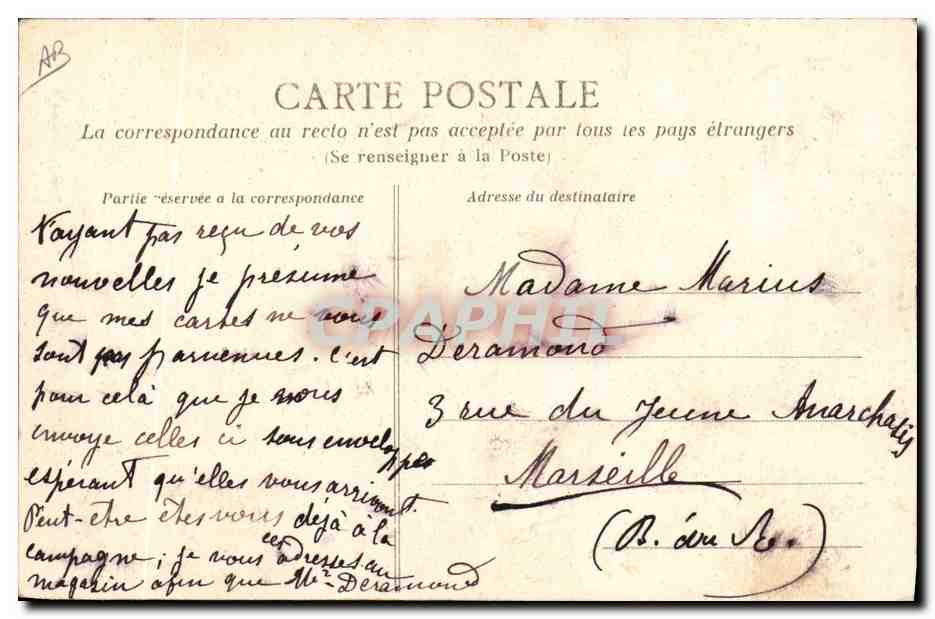 AB
CARTE POSTALE
La correspondance au recto n'est pas acceptée par tous les pays étrangers
(Se renseigner à la Poste)
Partie réservée a la correspondance
N'ayant pas reçu de vos
nouvelles je présume
que mes cartes ne vous
sont pas parvenues. C'est
pour celà que je vous
envoye celles ci sous enveloppes
espérant qu'elles vous arrivent.
Peut-être êtes vous déjà à la
campagne; je vous les adresses au
magazin afin que Mr Déramond
Adresse du destinataire
Madame Marius
Déramond
3 rue du Jeune Anarchasis
Marseille
(B. du R.)
CPAPHIL